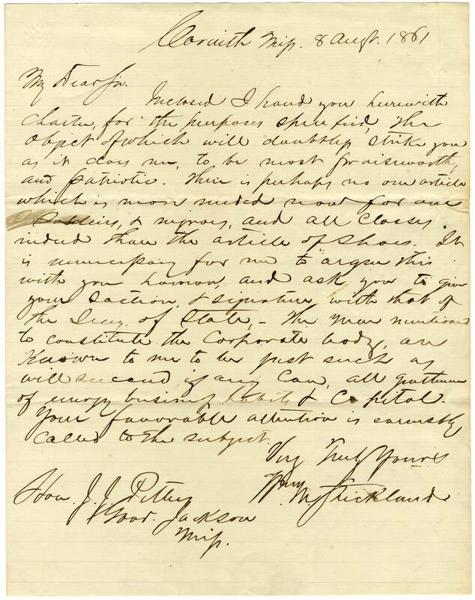 Corinth Miss. 8 Augt. 1861
My Dear Sir.
Inclosed I hand you herewith
Charter, for the purposes specified, the
object of which will doubtless strike you
as it does me, to be most praiseworthy
and patriotic. There is perhaps no one article
which is more needed now for our
Soldiers, & negroes, and all Classes
indeed than the article of Shoes. It
is unnecessary for me to argue this
with your honor, and ask you to give
your Sanction, & signature, with that of
the Secy. of State,- The men mentioned
to constitute the Corporate body, are
Known to me to be just such as
will succeed if any Can, all gentlemen
of energy business habits & Capital.
Your favorable attention is earnestly
Called to the subject.
Very Truly Yours
Wm M Strickland
Hon. J. J. Pettus
Gov. Jackson
Miss.